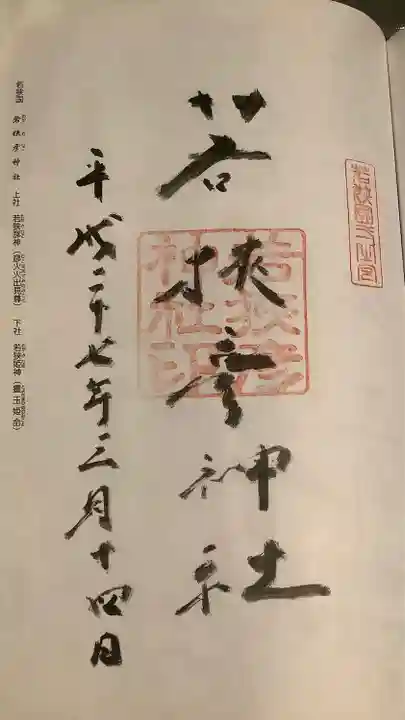 若狭國一之宮
若狹彦神社
若狭彦神社印
平成二十七年三月十四日
若狭国 若狭彦神社 上社 若狭彦神（彦火火出見尊） 下社 若狭姫神（豊玉姫命）